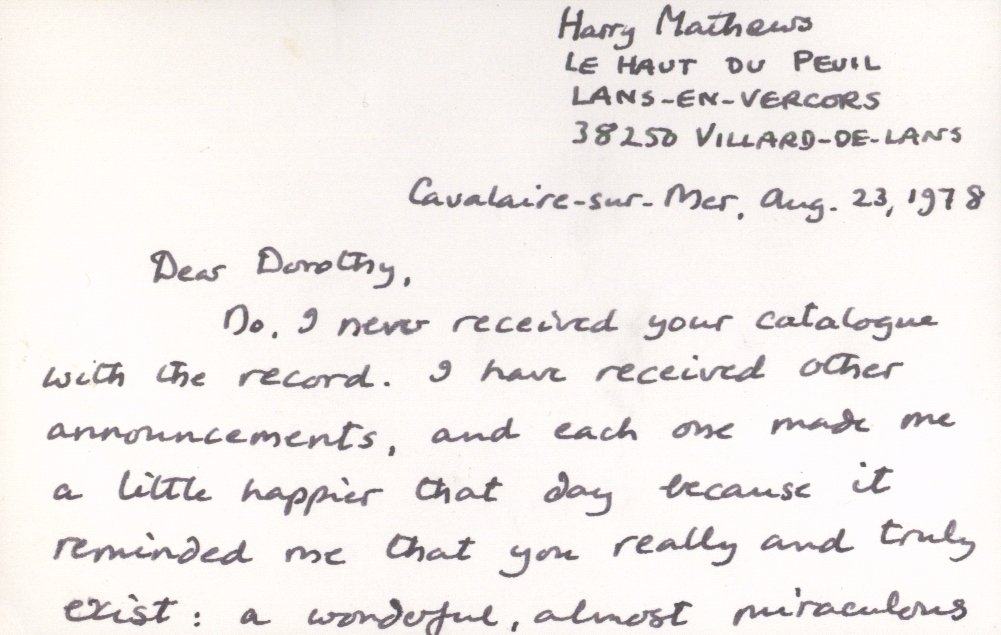 Harry Mathews
LE HAUT DU PEUIL
LANS-EN-VERCORS
38250 VILLARD-DE-LANS
Cavalaire-sur-Mer, Aug. 23, 1978
Dear Dorothy,
No, I never received your catalogue
with the record. I have received other
announcements, and each one made me
a little happier that day because it
reminded me that you really and truly
exist: a wonderful, almost miraculous